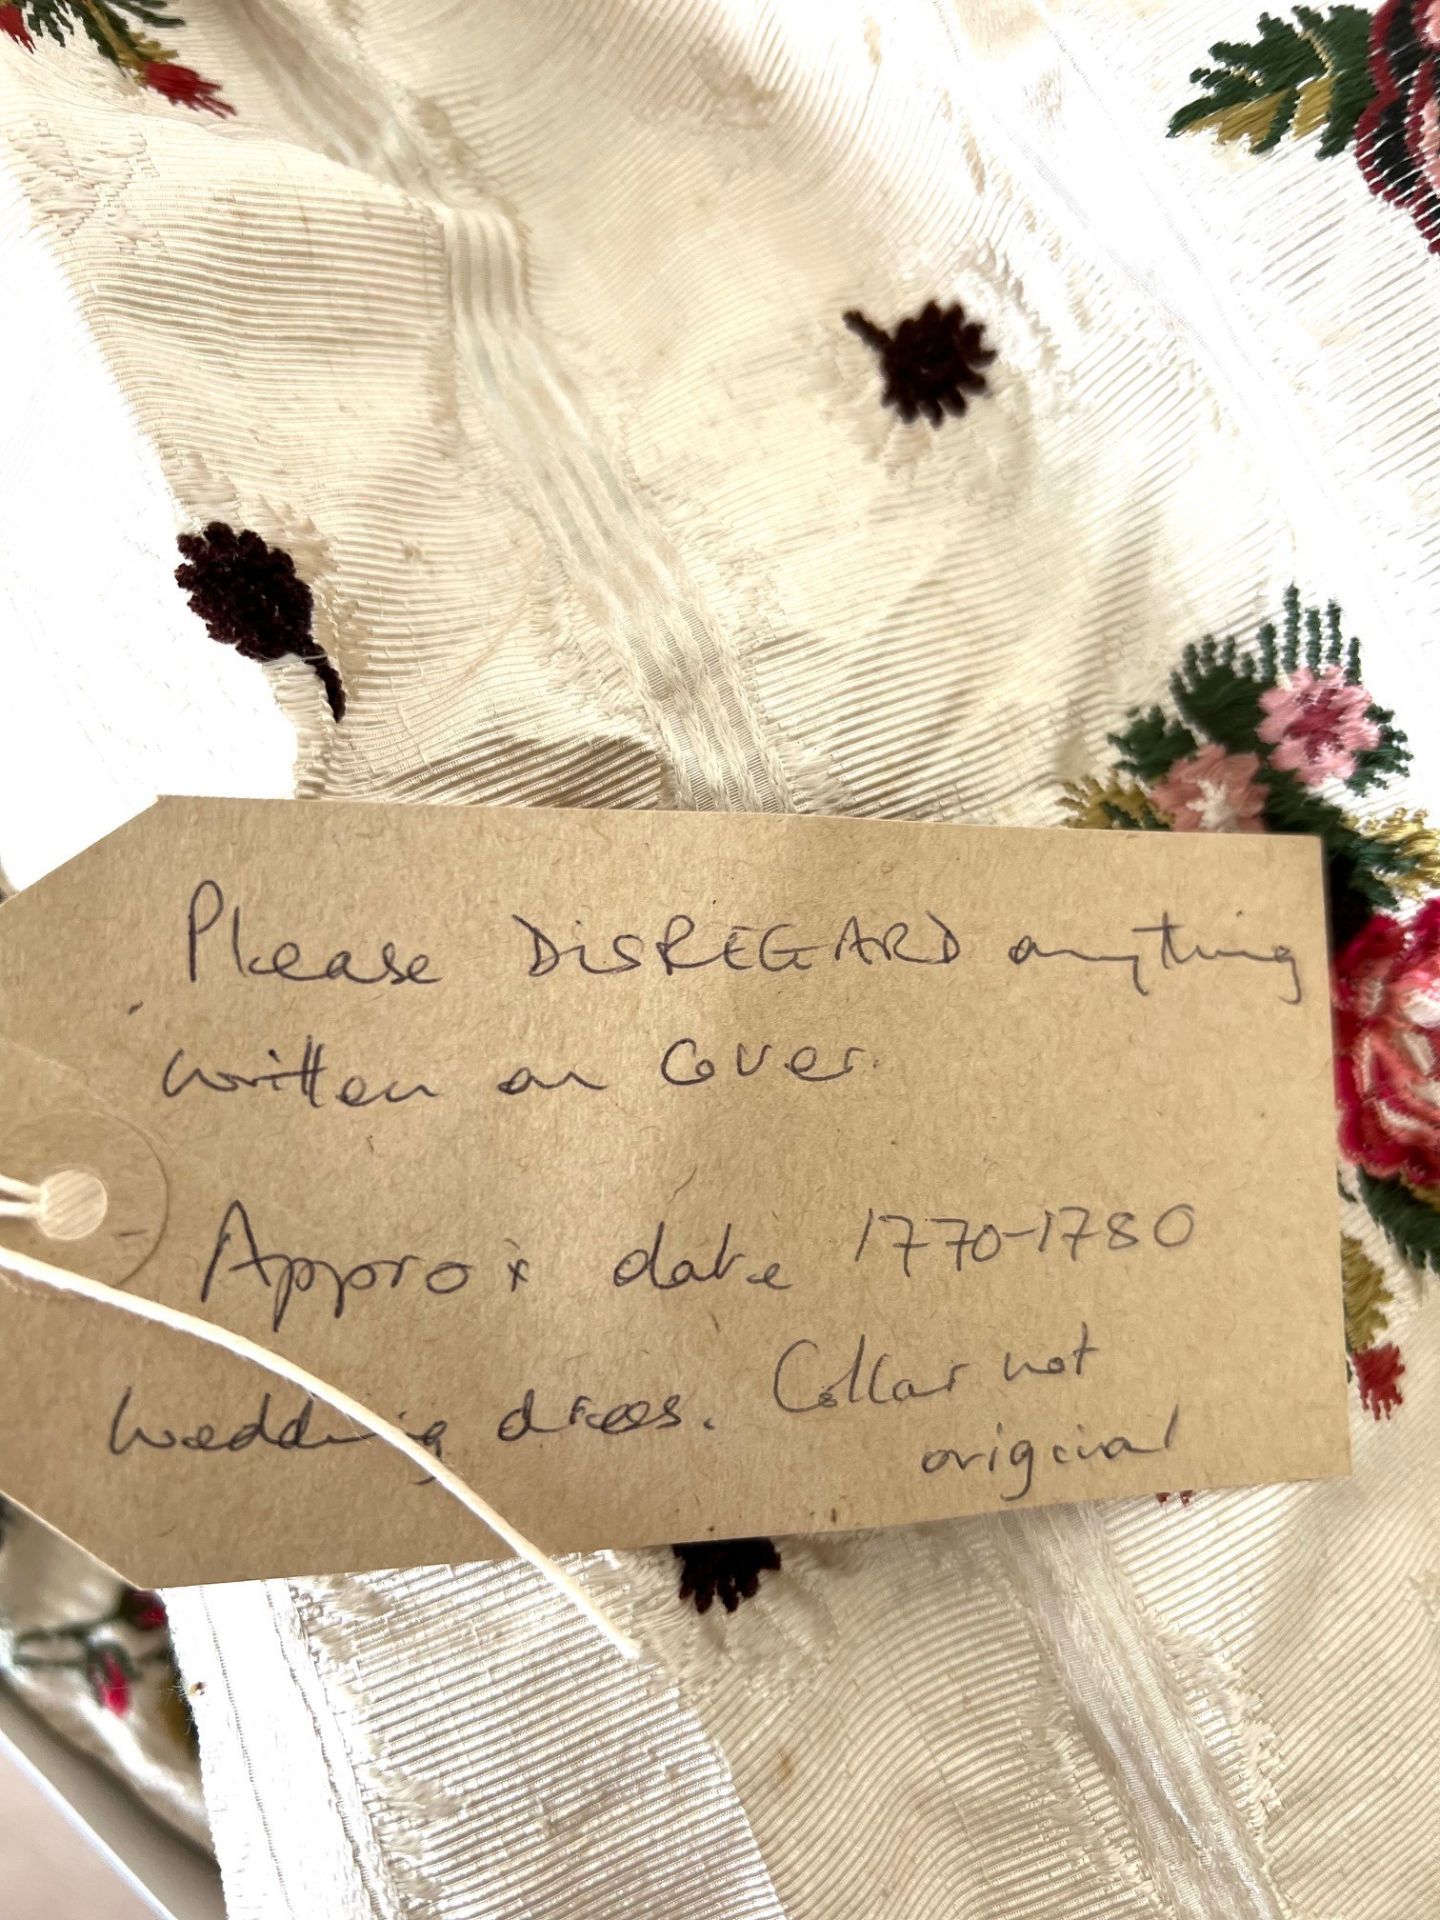 Please DISREGARD anything
written on cover.
Approx date 1770-1780
Wedding dress. Collar not
original